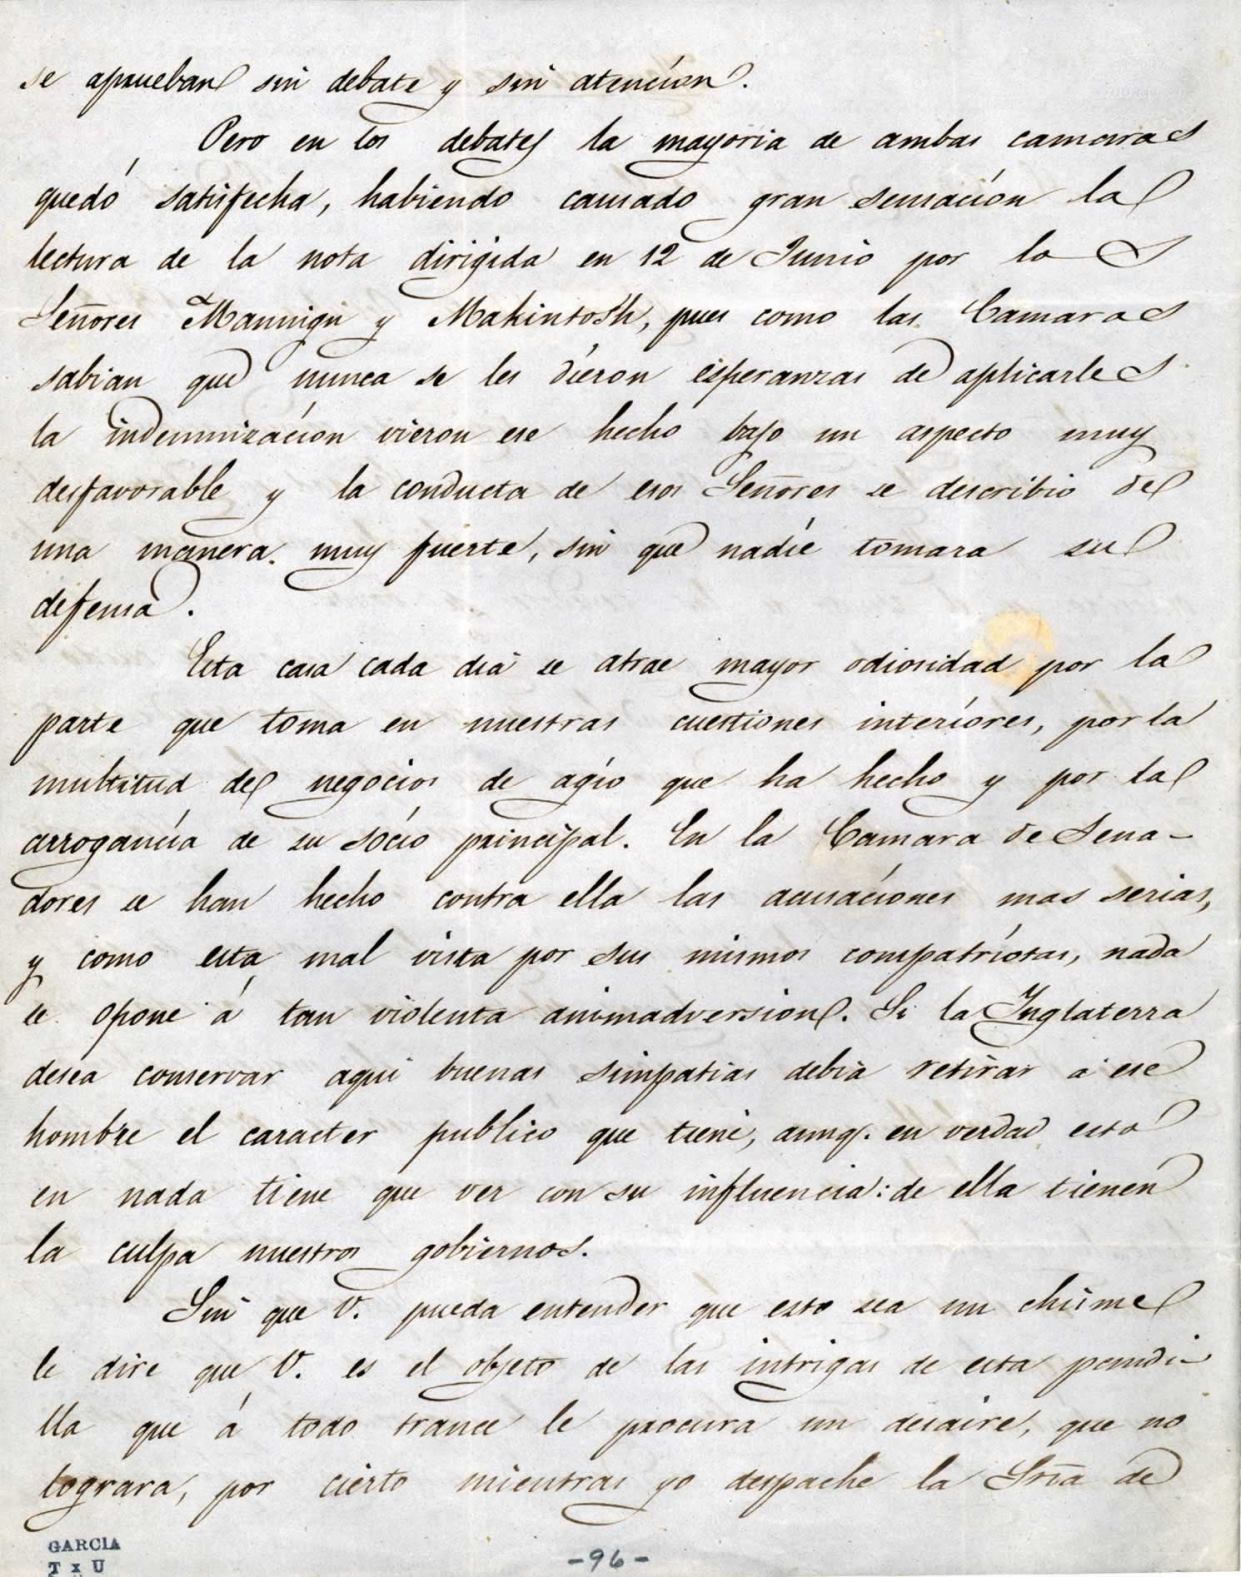 se aprueban sin debate y sin atencion.
Pero en los debates la mayoria de ambas camaras
quedó satisfecha, habiendo causado gran sensación la
lectura de la nota dirigida en 12 de Junio por los
Señores Mannign y Makintosh, pues como las Camaras
sabian que nunca se les dieron esperanzas de aplicarles
la indemnización vieron ese hecho bajo un aspecto muy
desfavorable y la conducta de esos Señores se describio de
una manera muy fuerte, sin que nadie tomara su
defensa.
Esta casa cada dia se atrae mayor odiosidad por la
parte que toma en nuestras cuestiones interiores, por la
multitud de negocios de agio que ha hecho y por la
arrogancia de su socio principal. En la Camara de Sena-
dores se han hecho contra ella las acusaciones mas serias,
y como esta mal vista por sus mismos compatriotas, nada
se opone á tan violenta animadversion. Si la Inglaterra
desea conservar aqui buenas simpatias debia retirar a ese
hombre el caracter publico que tiene, aunq. en verdad esto
en nada tiene que ver con su influencia: de ella tienen
la culpa nuestros gobiernos.
Sin que V. pueda entender que esto sea un chisme
le dire que V. es el objeto de las intrigas de esta pandi-
lla que á todo trance le procura un desaire, que no
lograra, por cierto mientras yo despache la Sria de
GARCIA
T x U
-96-